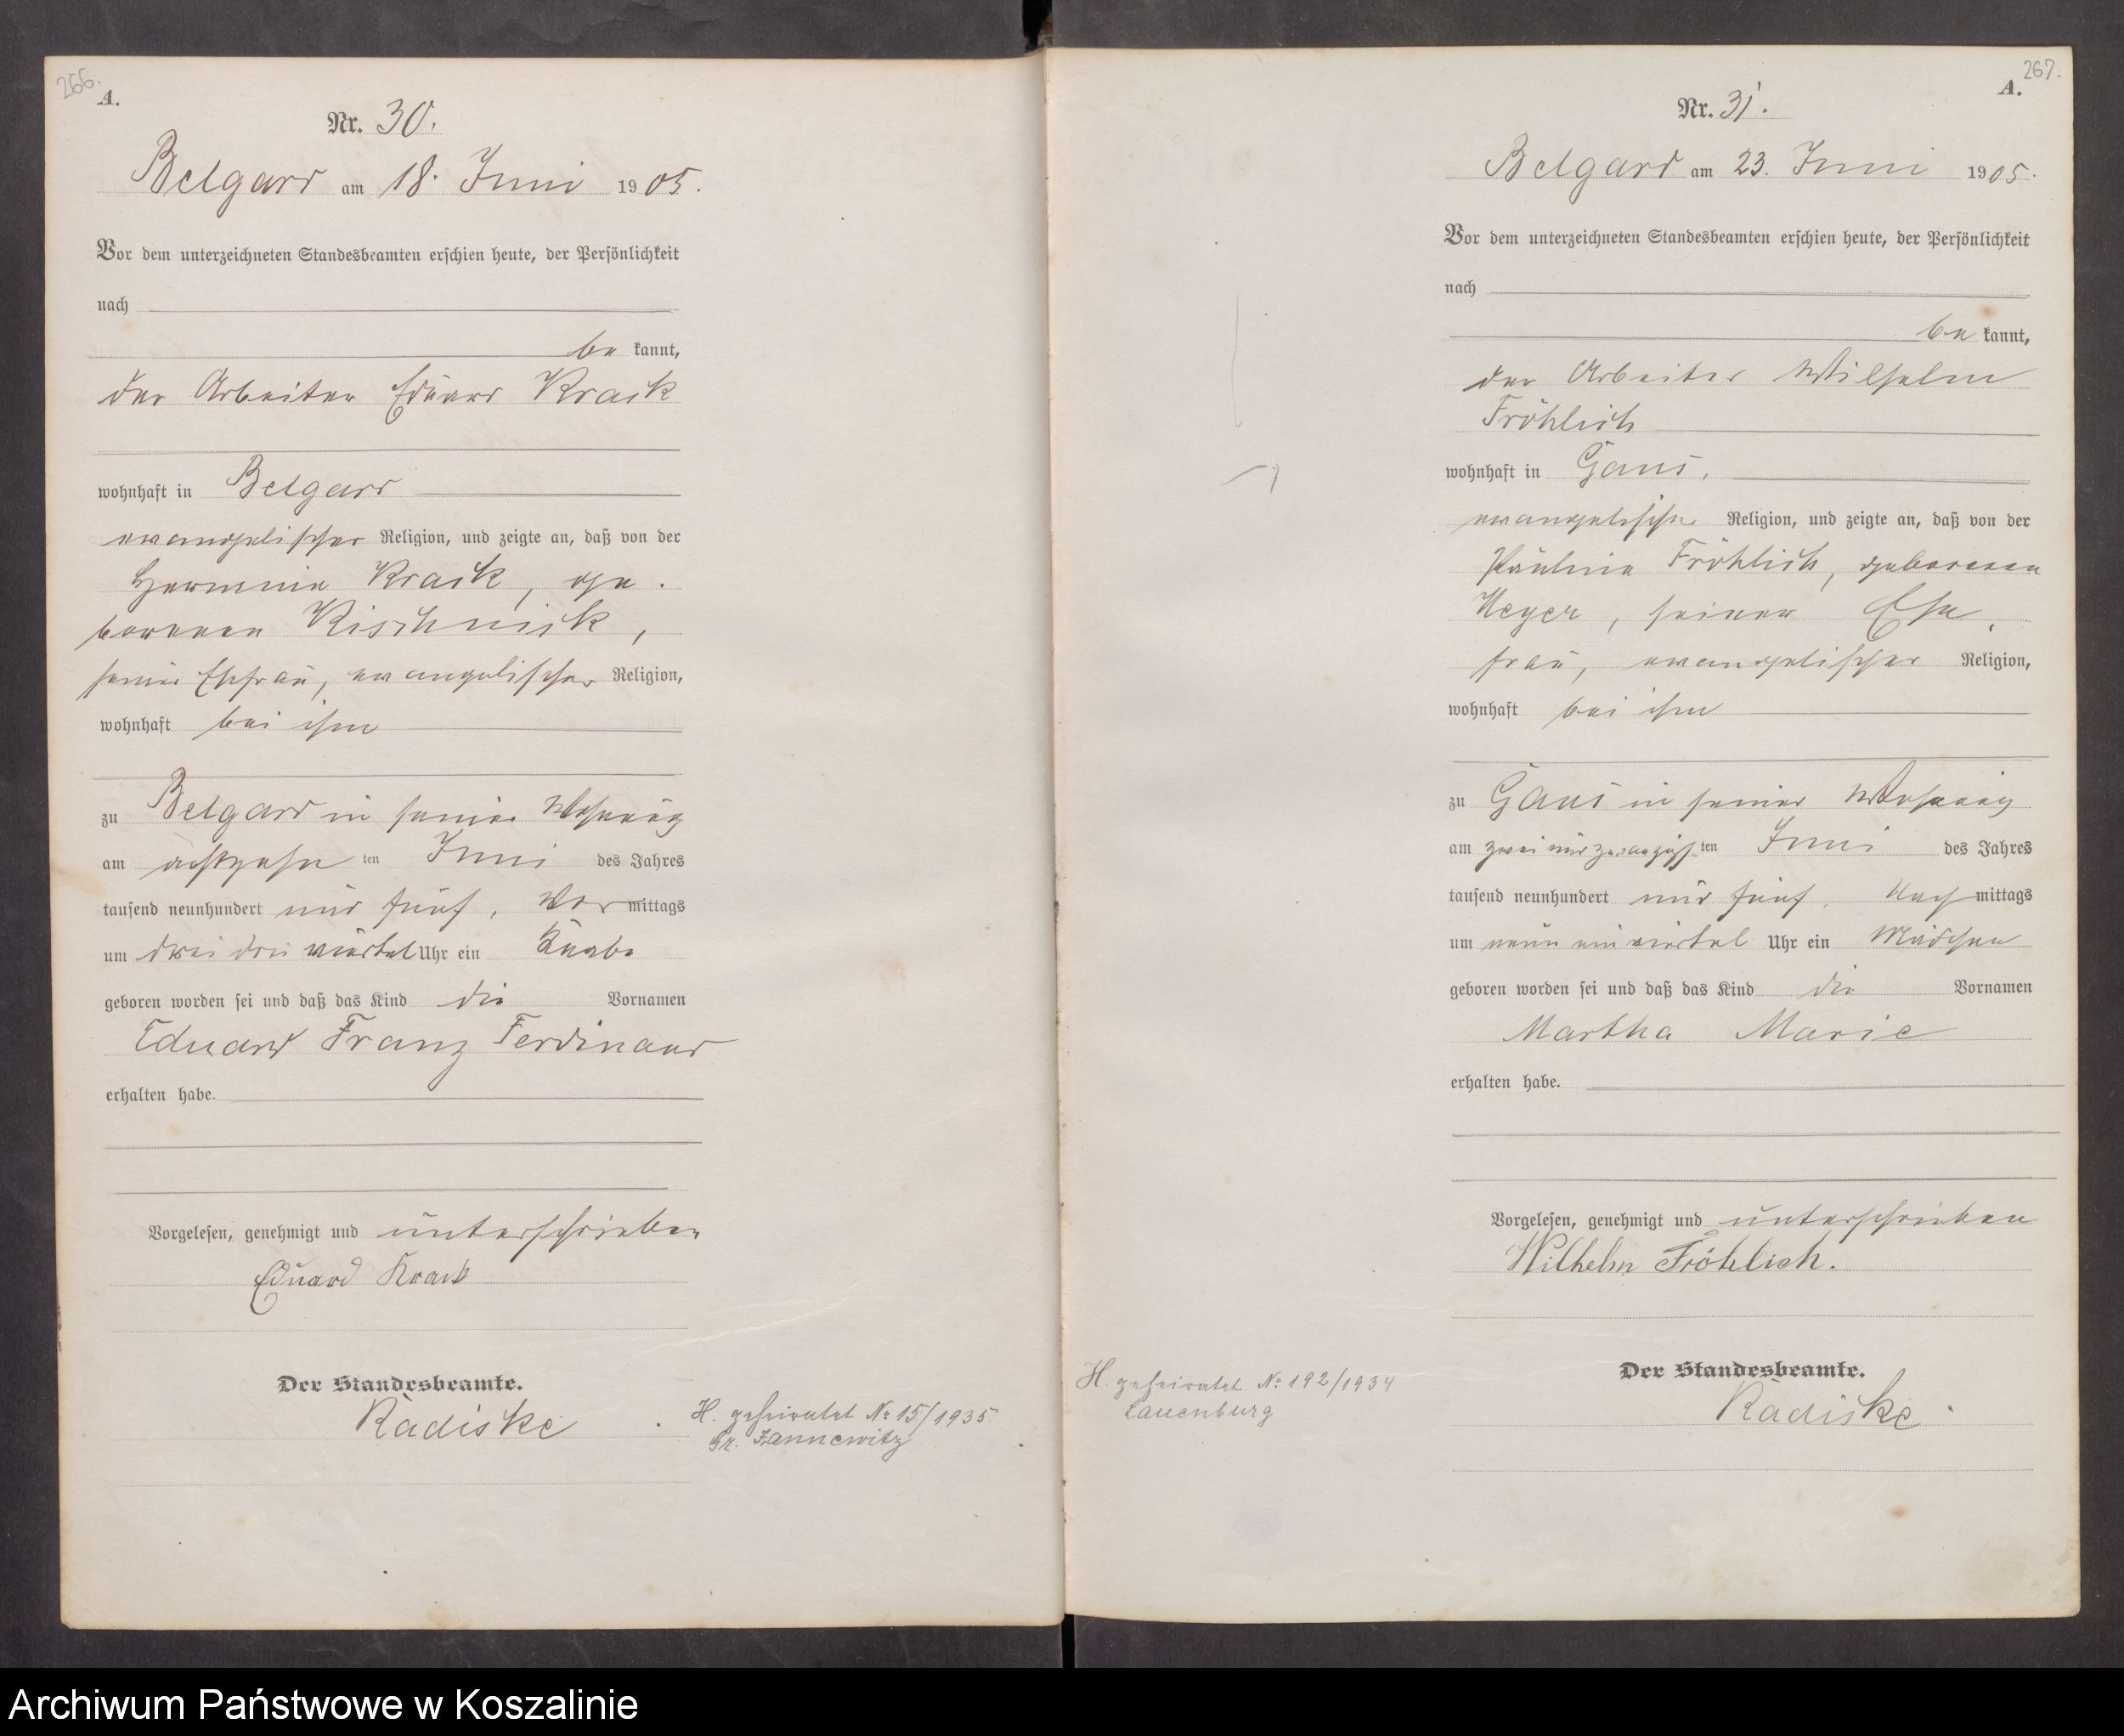 266.
A.
Nr. 30.
Belgard am 18. Juni 1905.
Vor dem unterzeichneten Standesbeamten erschien heute, der Persönlichkeit
nach
be kannt,
der Arbeiter Eduard Krack
wohnhaft in Belgard
evangelischer Religion, und zeigte an, daß von der
Hermine Krack, ge.
borenen Kischnick,
seiner Ehefrau, evangelischer Religion,
wohnhaft bei ihm
zu Belgard in seiner Wohnung
am achtzehn ten Juni des Jahres
tausend neunhundert und fünf, Vor mittags
um drei drei viertel Uhr ein Knabe
geboren worden sei und daß das Kind die Vornamen
Eduard Franz Ferdinand
erhalten habe.
Vorgelesen, genehmigt und unterschrieben
Eduard Krack
Der Standesbeamte.
Radiske
H. geheiratet No 15/1935
Gr. Jannewitz
267.
A.
Nr. 31.
Belgard am 23. Juni 1905.
Vor dem unterzeichneten Standesbeamten erschien heute, der Persönlichkeit
nach
be kannt,
der Arbeiter Wilhelm
Fröhlich
wohnhaft in Gans,
evangelischer Religion, und zeigte an, daß von der
Pauline Fröhlich, geborenen
Heyer, seiner Ehe
frau, evangelischer Religion,
wohnhaft bei ihm
zu Gans in seiner Wohnung
am zwei und zwanzigs ten Juni des Jahres
tausend neunhundert und fünf, Nach mittags
um neun ein viertel Uhr ein Mädchen
geboren worden sei und daß das Kind die Vornamen
Martha Marie
erhalten habe.
Vorgelesen, genehmigt und unterschrieben
Wilhelm Fröhlich.
Der Standesbeamte.
Radiske
H. geheiratet No 192/1934
Lauenburg
Archiwum Państwowe w Koszalinie